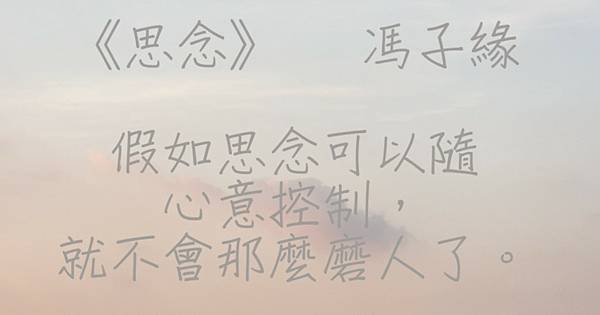 《思念》 馮子緣
假如思念可以隨
心意控制，
就不會那麼磨人了。